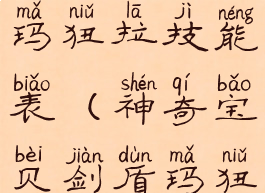 mǎ niǔ lā jì néng
玛狃拉技能
biǎo shén qí bǎo
表（神奇宝
bèi jiàn dùn mǎ niǔ
贝剑盾玛狃